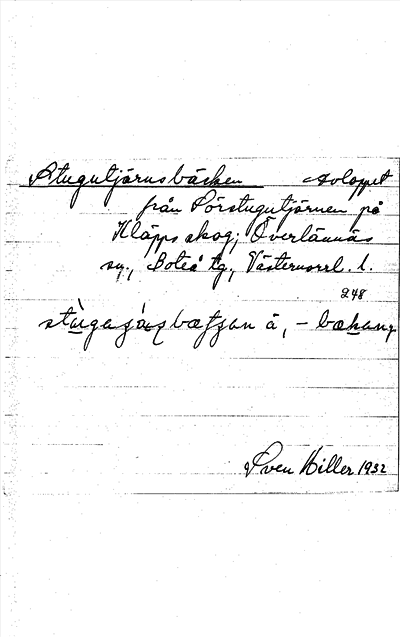 Stugutjärnsbäcken Avloppet
från Förstugutjärnen på
Kläpps skog, Överlännäs
sn., Boteå tg., Västernorrl. l.
248
å, –
Sven Hiller 1932